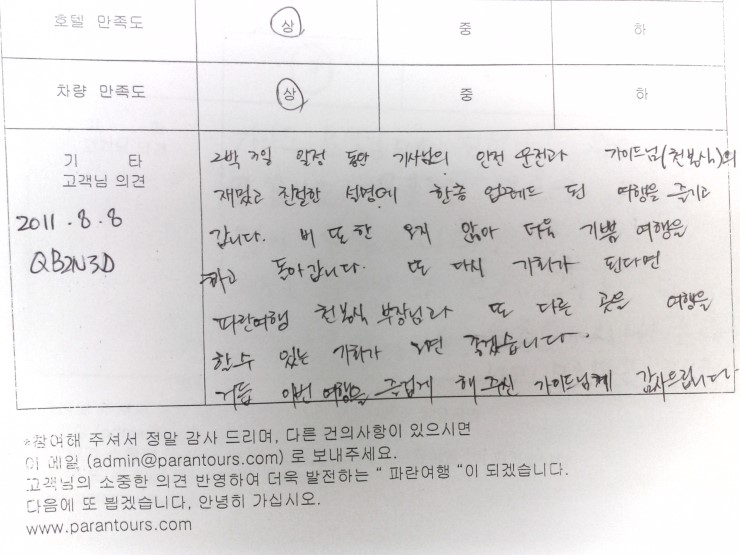 호텔 만족도 상 중 하
차량 만족도 상 중 하
기 타
고객님 의견
2011.8.8
QB2N3D
2박 3일 일정 동안 기사님의 안전 운전과 가이드님(천봉식)의
재밌고 친절한 설명에 한층 업그레드 된 여행을 즐기고
갑니다. 비 또한 오지 않아 더욱 기쁨 여행을
하고 돌아갑니다. 또 다시 기회가 된다면
파란여행 천봉식 부장님과 또 다른 곳을 여행을
한수 있는 기회가 오면 좋겠습니다.
거듭 이번 여행을 즐겁게 해 주신 가이드님께 감사드립니다
*참여해 주셔서 정말 감사 드리며, 다른 건의사항이 있으시면
이 메일 (admin@parantours.com) 로 보내주세요.
고객님의 소중한 의견 반영하여 더욱 발전하는 " 파란여행 "이 되겠습니다.
다음에 또 뵙겠습니다, 안녕히 가십시오.
www.parantours.com